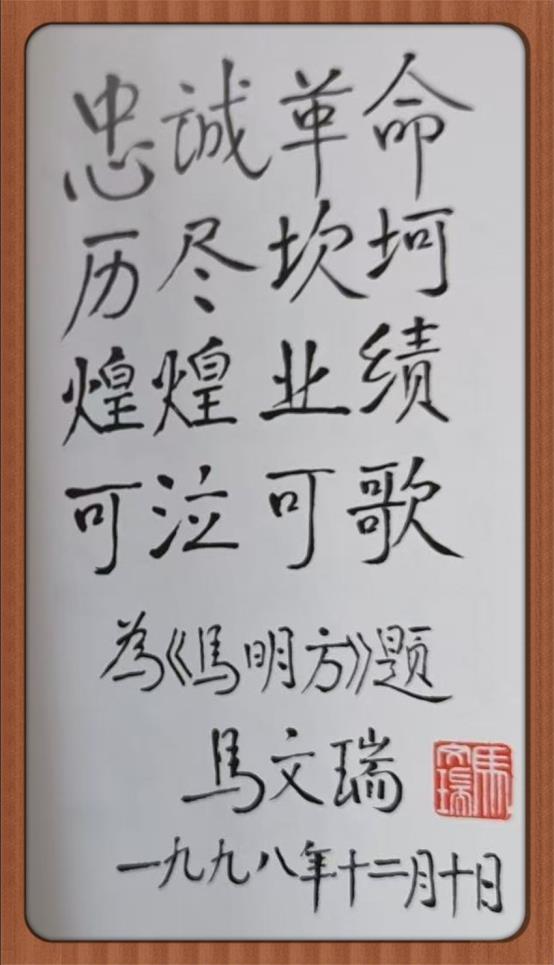 忠诚革命
历尽坎坷
煌煌业绩
可泣可歌
為《馬明方》题
馬文瑞
馬文瑞
一九九八年十二月十日